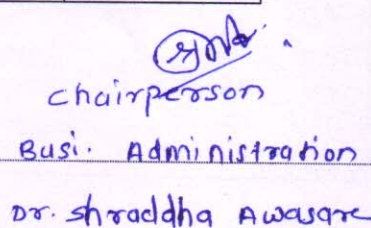 chairperson
Busi. Administration
Dr. shraddha Awasare